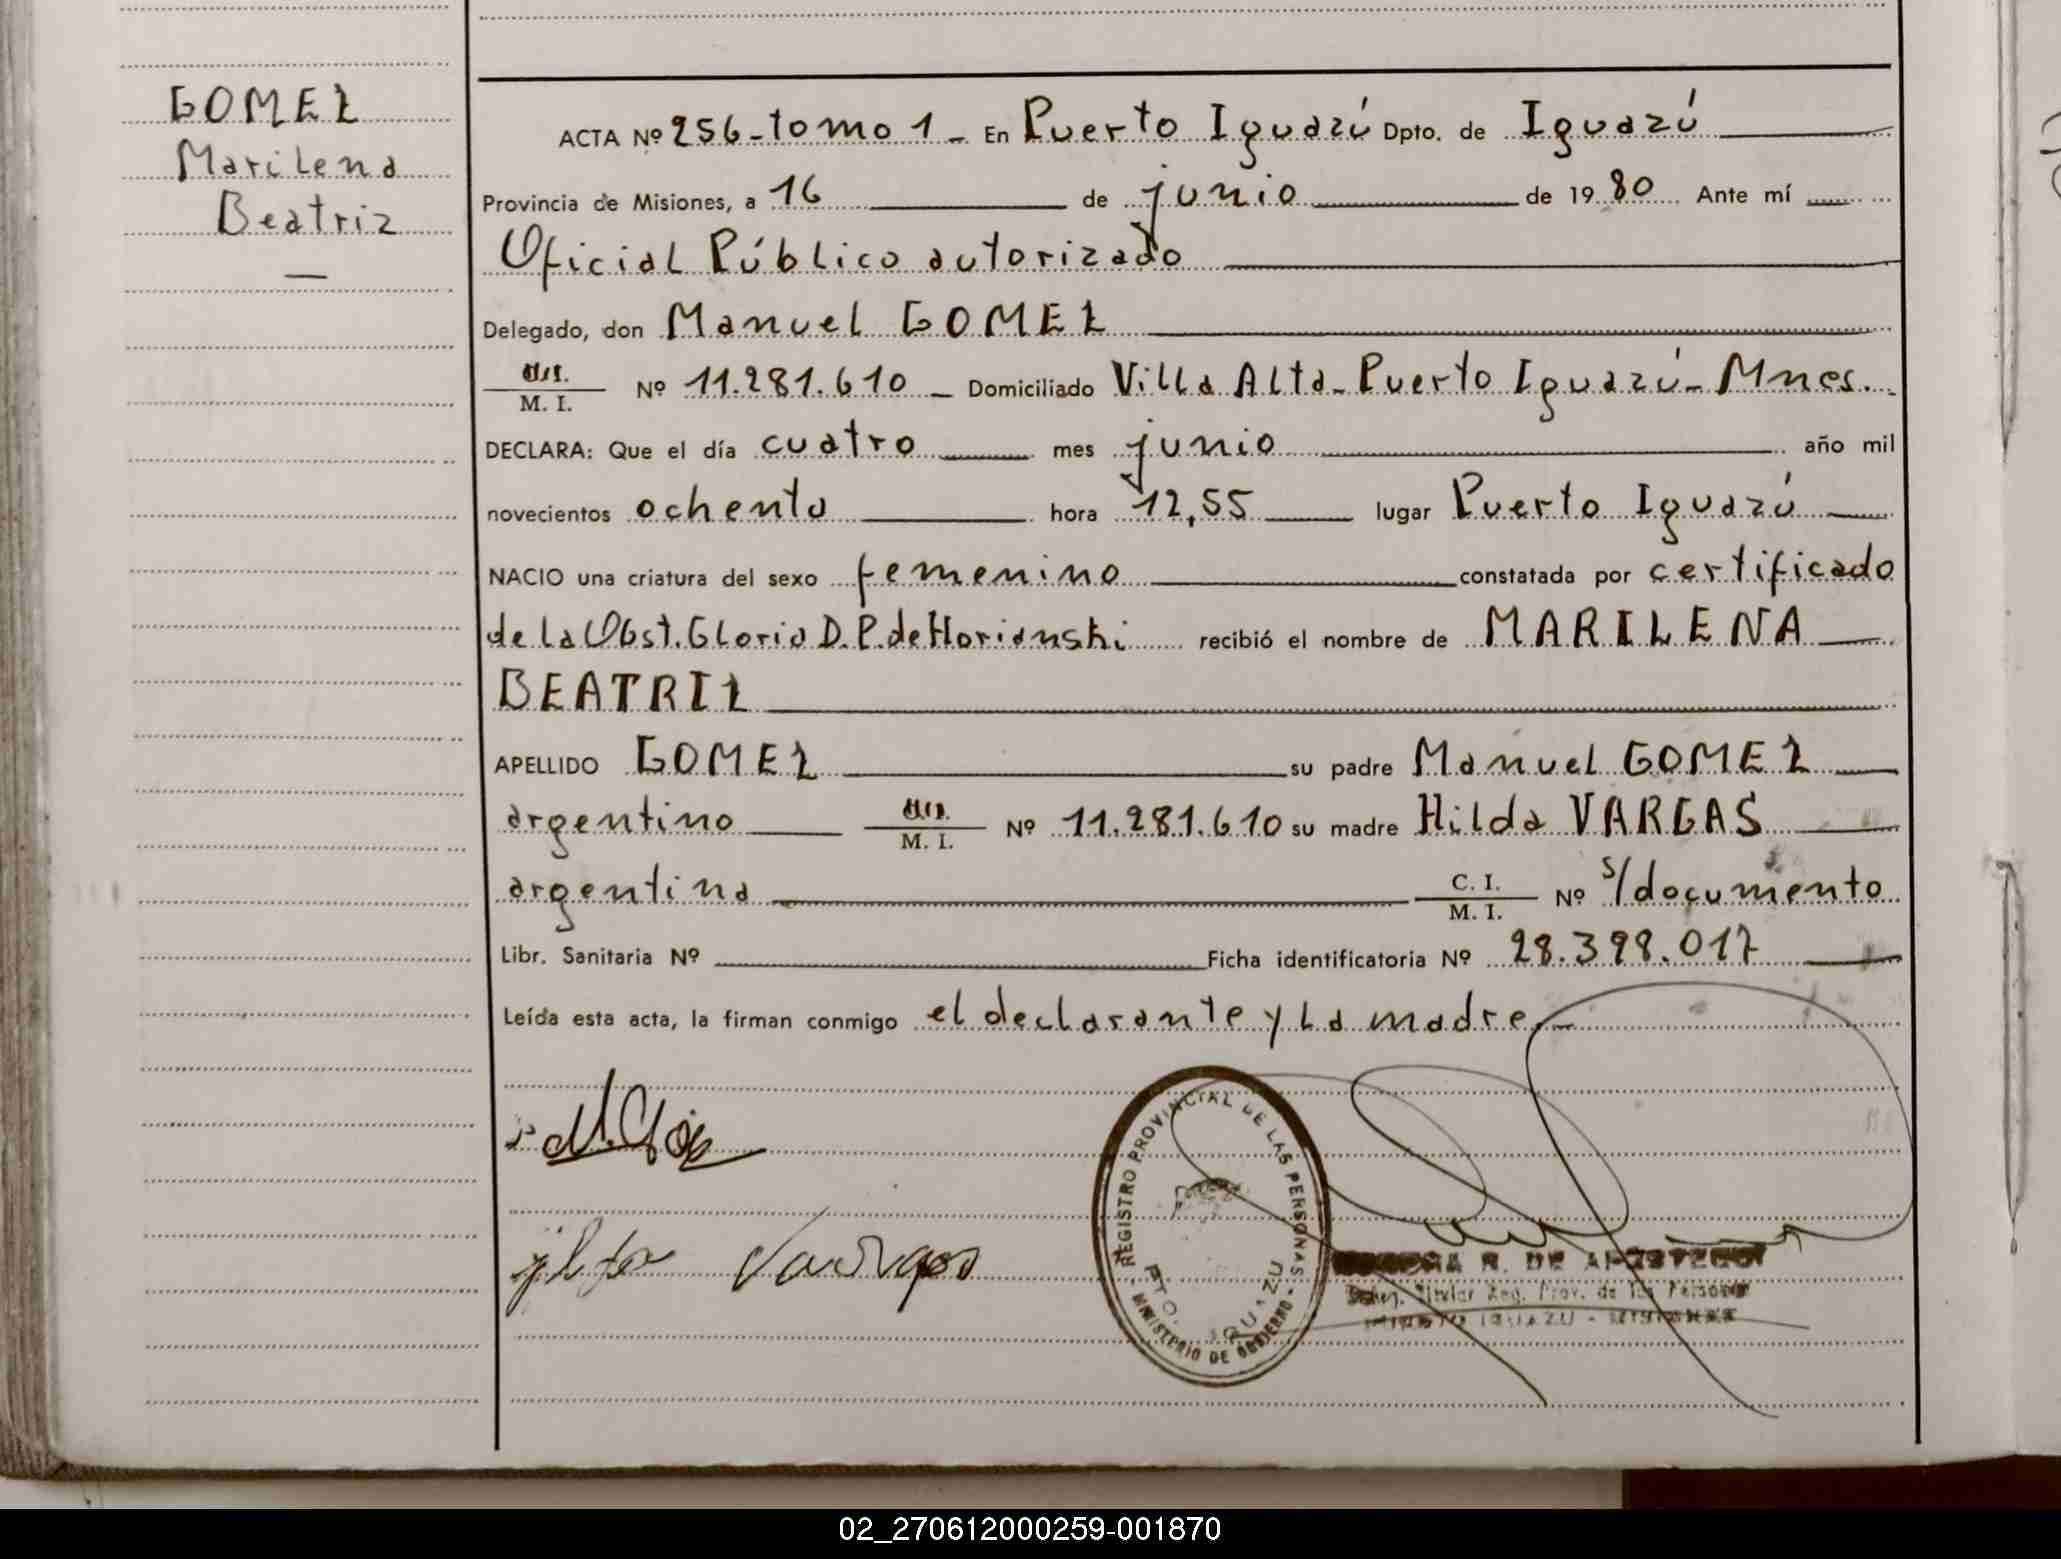 GOMEZ
Marilena
Beatriz
ACTA Nº 256-tomo 1- En Puerto Iguazú Dpto. de Iguazú
Provincia de Misiones, a 16 de junio de 1980 Ante mí
Oficial Público autorizado
Delegado, don Manuel GOMEZ
M. I. Nº 11.281.610 - Domiciliado Villa Alta-Puerto Iguazú-Mnes.
DECLARA: Que el día cuatro mes junio año mil
novecientos ochenta hora 12,55 lugar Puerto Iguazú
NACIO una criatura del sexo femenino constatada por certificado
de la Obst. Gloria D. P. de Horianski recibió el nombre de MARILENA
BEATRIZ
APELLIDO GOMEZ su padre Manuel GOMEZ
argentino M. I. Nº 11.281.610 su madre Hilda VARGAS
argentina C. I. M. I. Nº s/documento
Libr. Sanitaria Nº Ficha identificatoria Nº 28.398.017
Leída esta acta, la firman conmigo el declarante y la madre.-
Vargas
REGISTRO PROVINCIAL DE LAS PERSONAS
PTO. IGUAZU
MINISTERIO DE GOBIERNO
R. DE
Titular Reg. Prov. de las Personas
IGUAZU - MISIONES
02_270612000259-001870